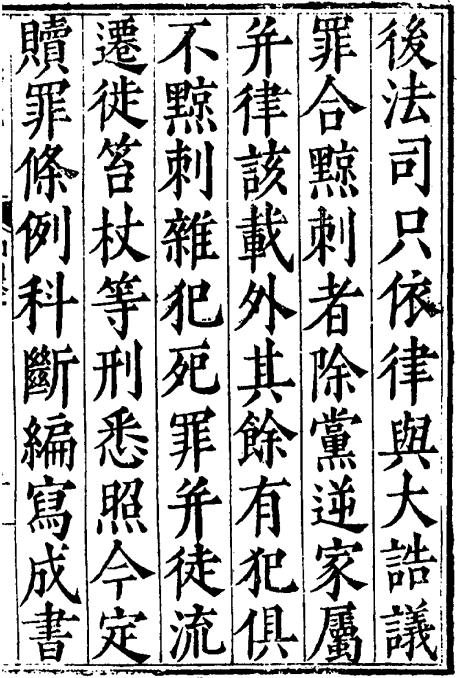 後法司只依律與大誥議
罪合黥刺者除黨逆家屬
并律該載外其餘有犯俱
不黥刺雜犯死罪并徒流
遷徙笞杖等刑悉照今定
贖罪條例科斷編寫成書